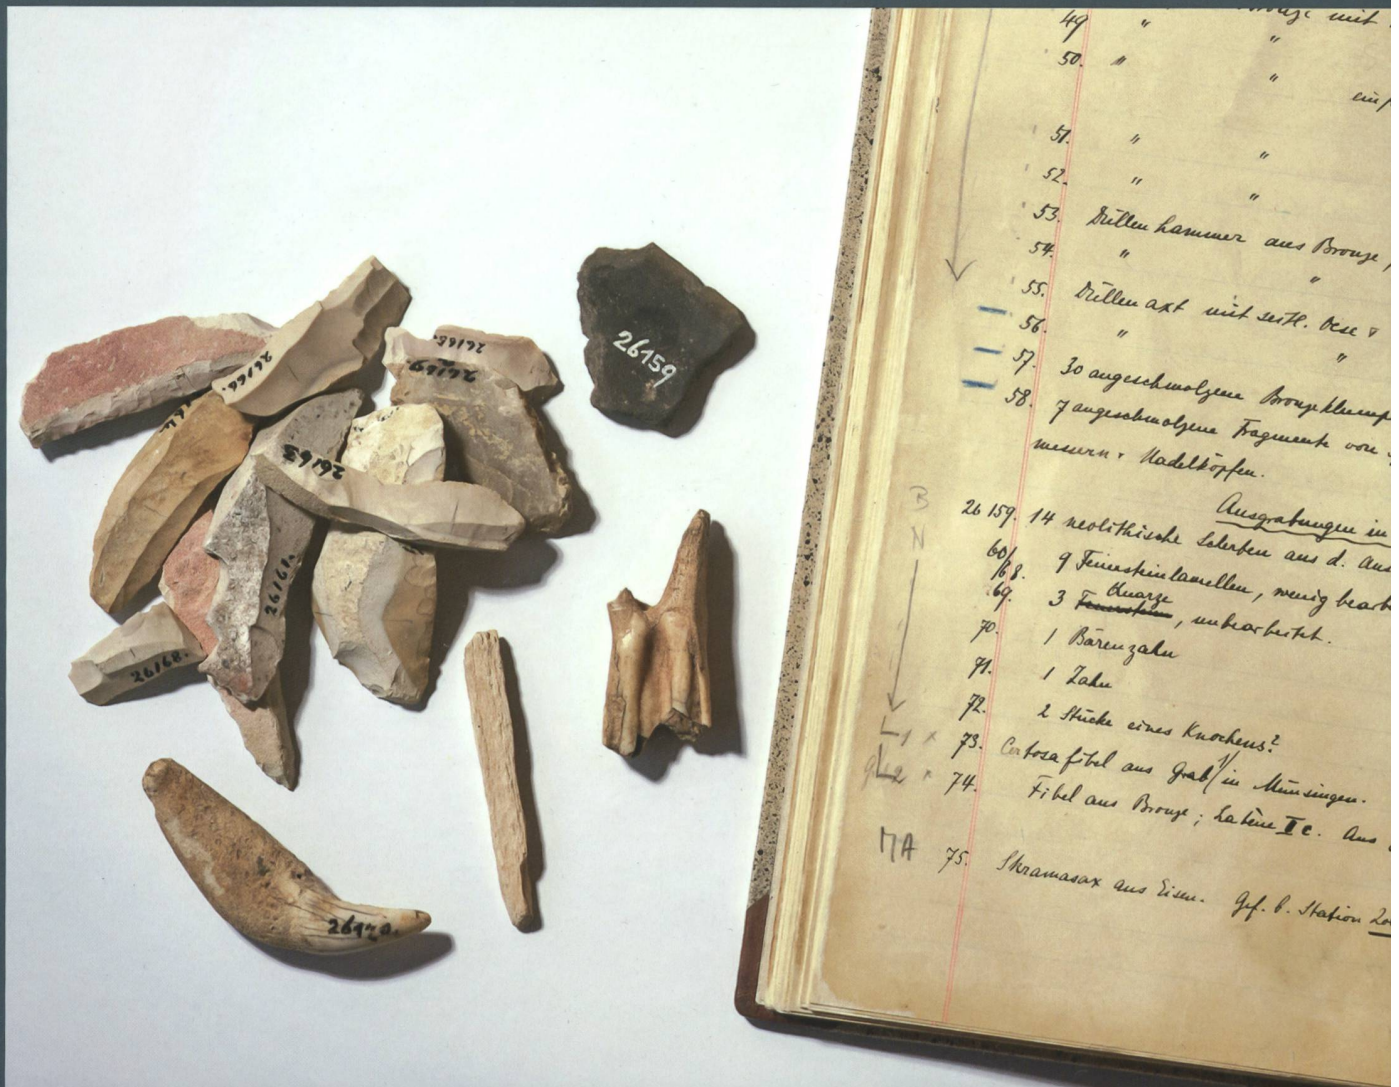 26166.
26165.
26169
26163
26161.
26168.
26159
26170.
mit
49 " "
50. " "
51. " "
52. " "
53. Düllenhammer aus Bronze,
54. " "
55. Düllenaxt mit seitl. Oese
56. " "
57. 30 angeschmolzene Bronzeklump
58. 7 angeschmolzene Fragmente von
messern + Nadelköpfen.
Ausgrabungen in
B
N
26 159. 14 neolithische Scherben aus d. Aus
60/68. 9 Feuersteinlamellen, wenig bearb
Quarze
69. 3 Feuerstein, unbearbeitet.
70. 1 Bärenzahn
71. 1 Zahn
72. 2 Stücke eines Knochens?
L 1 x 73. Certosafibel aus Grab 1/ in Münsingen.
L 2 x 74. Fibel aus Bronze; Latène I c. Aus
MA 75. Skramasax aus Eisen. Gef. b. Station